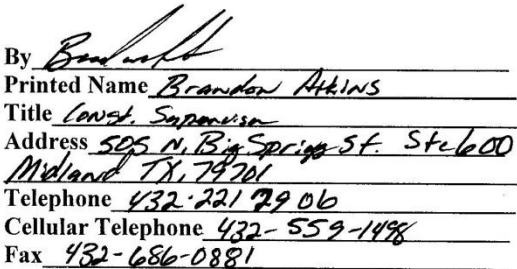 By
Printed Name Brandon Atkins
Title Const. Supervisor
Address 505 N. Big Spring St. Ste 600
Midland TX, 79701
Telephone 432-221 2906
Cellular Telephone 432-559-1498
Fax 432-686-0881